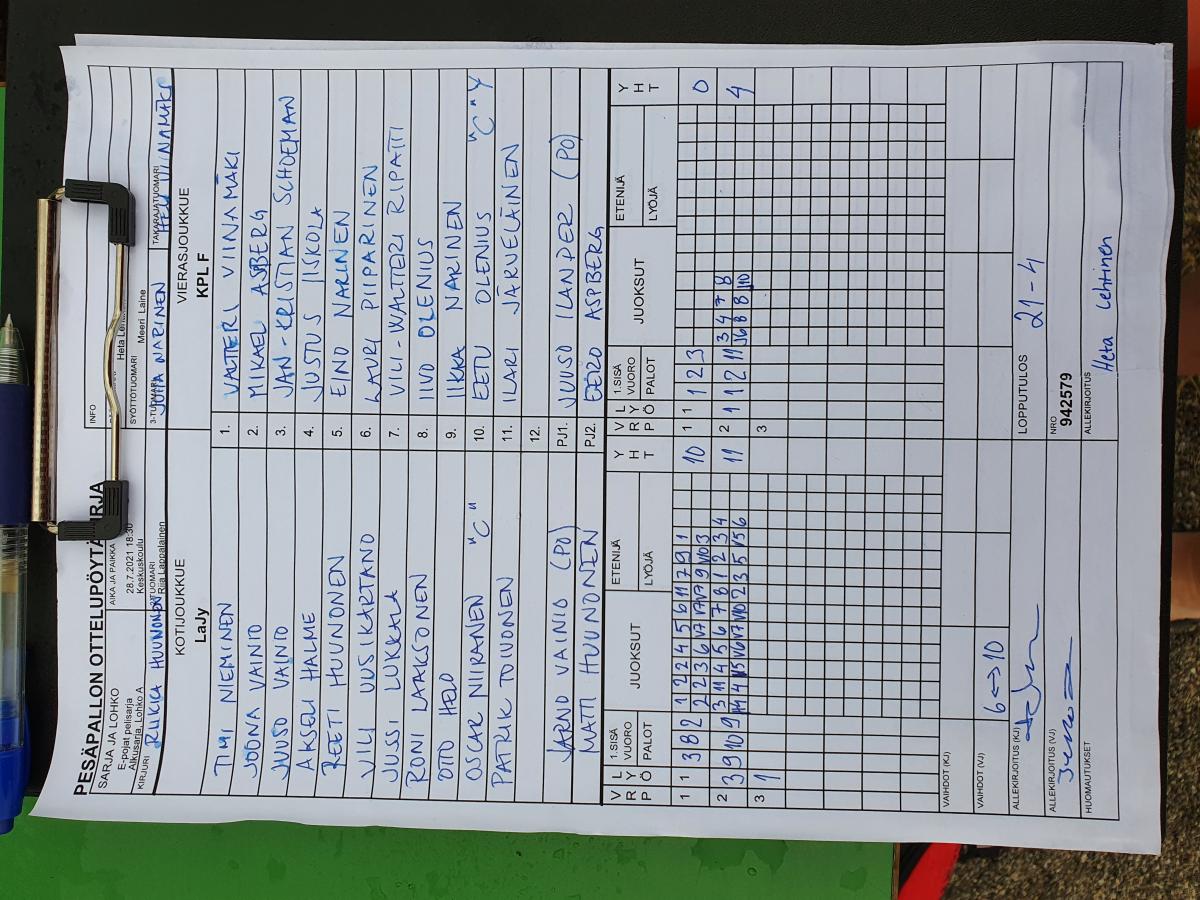 PESÄPALLON OTTELUPÖYTÄKIRJA
SARJA JA LOHKO
E-pojat pelisarja
Alkusarja Lohko A
AIKA JA PAIKKA
28.7.2021 18:30
Keskuskoulu
INFO
SYÖTTÖTUOMARI
Heta
Meeri Laine
KIRJURI RIIKKA HUUNONEN
Riia Lappalainen
JUHA NARINEN
TAKARAJATUOMARI
HELI VIINAMÄKI
KOTIJOUKKUE
LaJy
VIERASJOUKKUE
KPL F
TIMI NIEMINEN 1. VALTTERI VIINAMÄKI
JOONA VAINIO 2. MIKAEL ASPBERG
JUUSO VAINIO 3. JAN-KRISTIAN SCHOEMAN
AKSELI HALME 4. JUSTUS IISKOLA
REETI HUUNONEN 5. EINO NARINEN
VILI UUSIKARTANO 6. LAURI PIIPARINEN
JUSSI LUKKALA 7. VILI-WALTTERI RIPATTI
RONI LAAKSONEN 8. IIVO OLENIUS
OTTO HELO 9. IIKKA NARINEN
OSCAR NIIRANEN "C" 10. EETU OLENIUS "C" Y
PATRIK TOIVONEN 11. ILARI JÄRVELÄINEN
12.
JARNO VAINIO (PO) PJ1. JUUSO ILANDER (PO)
MATTI HUUNONEN PJ2. EERO ASPBERG
VRP LYÖ 1.SISÄ VUORO PALOT JUOKSUT ETENIJÄ LYÖJÄ YHT VRP LYÖ 1.SISÄ VUORO PALOT JUOKSUT ETENIJÄ LYÖJÄ YHT
1 1 3 8 2 1 2 2 4 5 6 11 7 9 1 10 1 1 1 2 3 0
2 3 9 10 9 3 11 4 5 6 7 8 1 2 3 4 11 2 1 1 2 11 3 4 7 8 4
3 1 3
VAIHDOT (KJ)
VAIHDOT (VJ) 6↔10
ALLEKIRJOITUS (KJ)
LOPPUTULOS 21-4
ALLEKIRJOITUS (VJ)
NRO
942579
HUOMAUTUKSET
ALLEKIRJOITUS
Heta Lehtinen